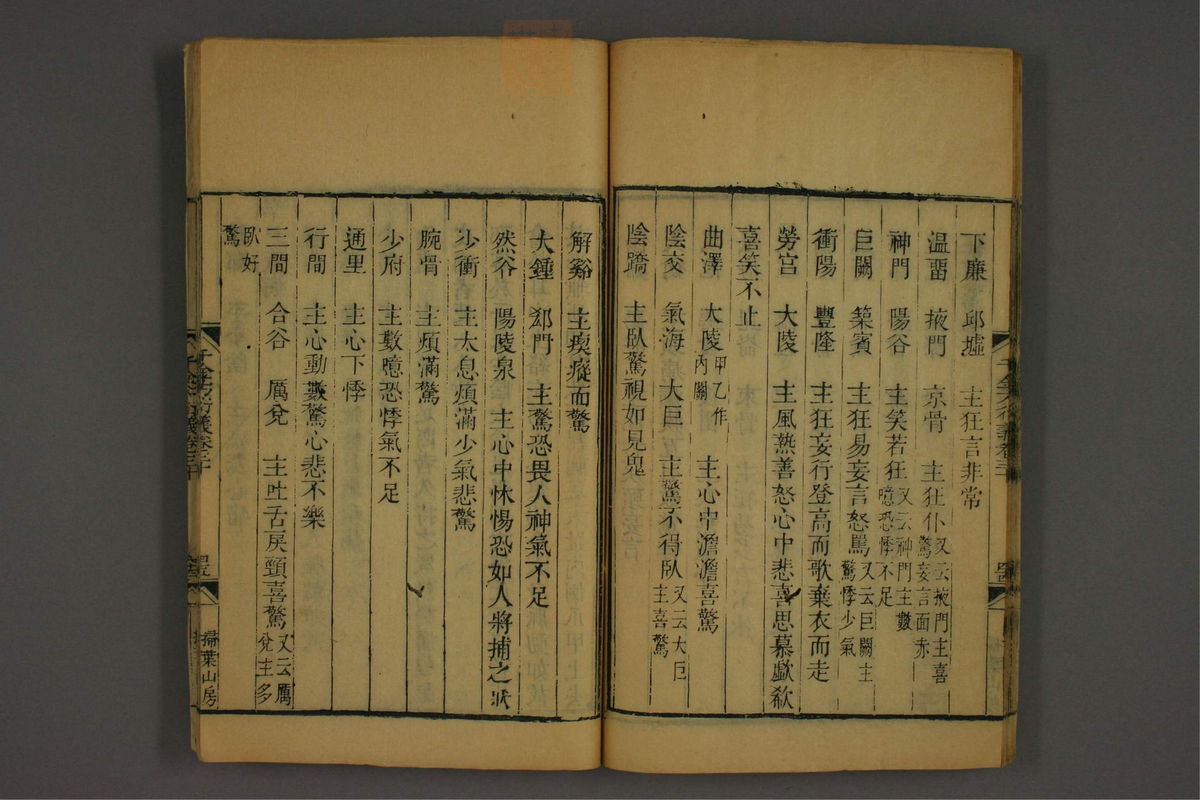 下廉　邱墟　主狂言非常
温畱　掖門　京骨　主狂仆又云掖門主喜驚妄言面赤
神門　陽谷　主笑若狂又云神門主數噫恐悸不足
巨闕　築賓　主狂易妄言怒罵又云巨闕主驚悸少氣
衝陽　豐隆　主狂妄行登高而歌棄衣而走
勞宮　大陵　主風熱善怒心中悲喜思慕歔欷
喜笑不止
曲澤　大陵甲乙作內關　主心中澹澹喜驚
陰交　氣海　大巨　主驚不得臥又云大巨主喜驚
陰蹻　主臥驚視如見鬼
解谿　主瘈瘲而驚
大鍾　郄門　主驚恐畏人神氣不足
然谷　陽陵泉　主心中怵惕恐如人將捕之狀
少衝　主大息煩滿少氣悲驚
腕骨　主煩滿驚
少府　主數噫恐悸氣不足
通里　主心下悸
行間　主心動數驚心悲不樂
三間　合谷　厲兌　主吐舌戾頸喜驚又云厲兌主多
臥好驚
千金方衍義卷三十
掃葉山房